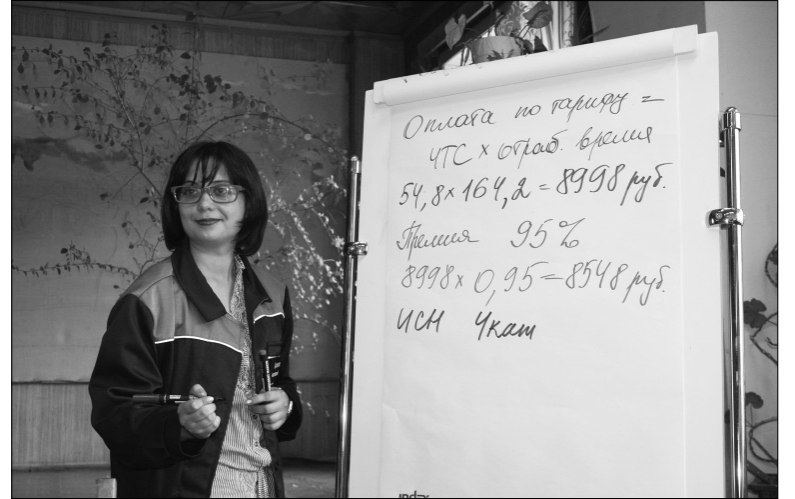 Оплата по тарифу =
ЧТС × отраб. время
54,8 × 164,2 = 8998 руб.
Премия 95%
8998 × 0,95 = 8548 руб.
ИСН 4кат
index